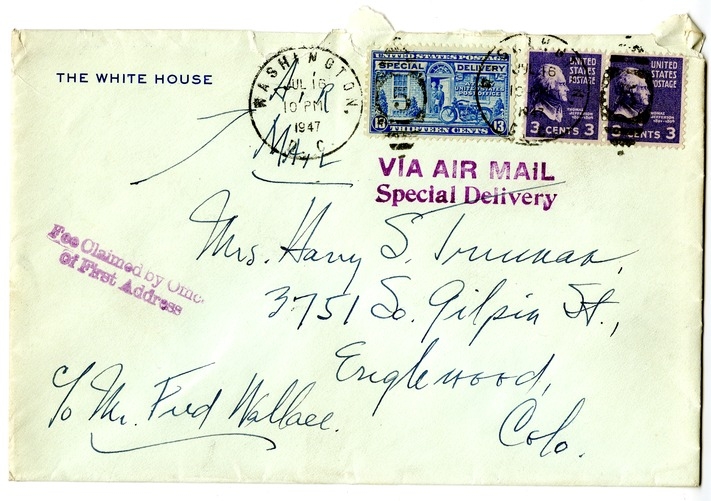 THE WHITE HOUSE
WASHINGTON,
JUL 16
10 PM
1947
D. C.
Air
Mail
UNITED STATES POSTAGE
SPECIAL DELIVERY
UNITED STATES
POST OFFICE
13 13
THIRTEEN CENTS
UNITED
STATES
POSTAGE
THOMAS
JEFFERSON
3 CENTS 3
UNITED
STATES
POSTAGE
THOMAS
JEFFERSON
3 CENTS 3
VIA AIR MAIL
Special Delivery
Fee Claimed by Office
Of First Address
Mrs. Harry S. Truman,
3751 So. Gilpin St.,
Englewood,
Colo.
c/o Mr. Fred Wallace.